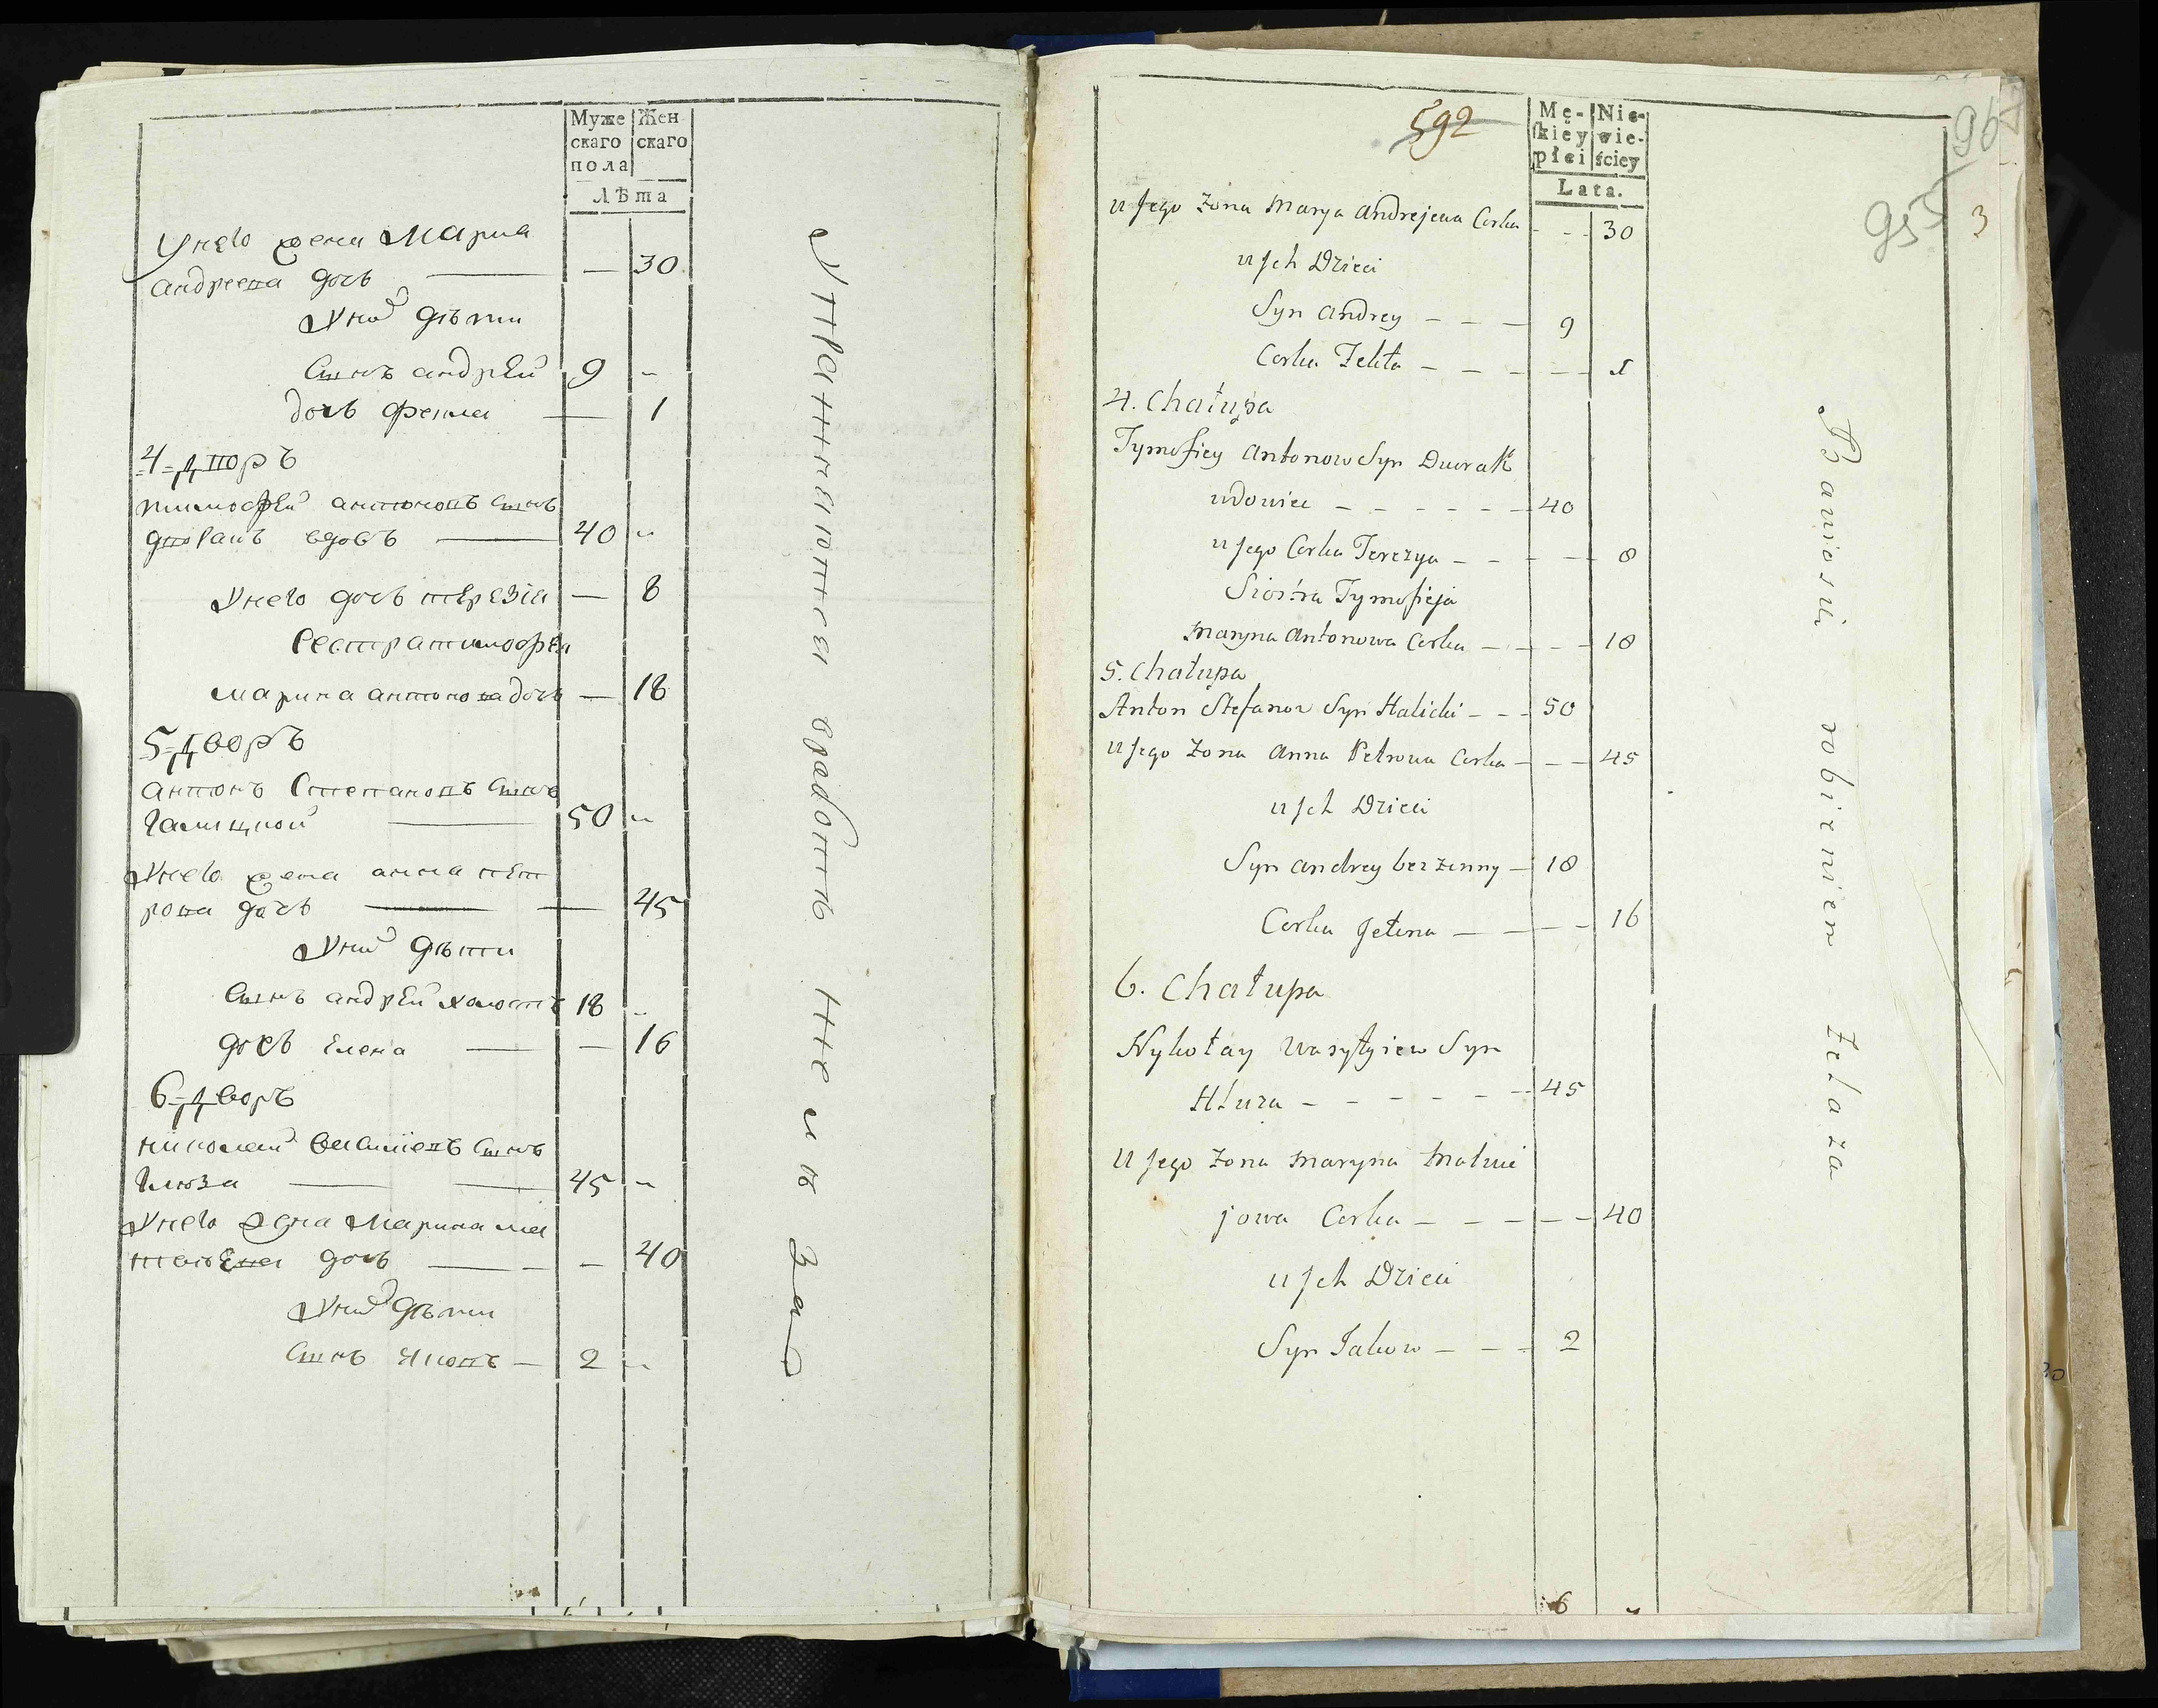 Муже Жен
скаго скаго
пола
Лѣта
Унево жена Мариа
андреева дочь — — 30
Унихъ дѣти
Сынъ андрей 9 -
дочь — 1
4=Дворъ
тимофей антоновъ Сынъ
дворакъ вдовъ — 40 -
Унево дочь терезіа — 8
Сестра тимофея
марина антонова дочь — 18
5=Дворъ
антонъ Степановъ Сынъ
Галицкой — 50 -
Унево жена анна пет
рова дочь — — 45
Унихъ дѣти
Сынъ андрей холостъ 18 -
дочь Елена — — 16
6=Дворъ
николай василіевъ Сынъ
Глюза — — 45 -
Унево жена Марина ма
твѣева дочь — — 40
Унихъ дѣти
Сынъ Яковъ — 2 -
Упражняются вработѣ
592
96
955
3
Mę- Nie-
ſkiey wie-
płci ściey
Lata.
u Jego Żona Marya Andrejewa Corka - - 30
u Jch Dzieci
Syn Andrey - - - 9
Corka Tekla - - - - - 1
4. Chałupa
Tymofiey Antonow Syn Dworak
udowiec - - - - - - 40
u Jego Corka Terezya - - - - 8
Siostra Tymofieja
Maryna Antonowa Corka - - - - 18
5. Chałupa
Anton Stefanow Syn Halicki - - - 50
u Jego Żona Anna Petrowa Corka - - - 45
u Jch Dzieci
Syn Andrey bezżenny - 18
Corka Jelena - - - - 16
6. Chałupa
Nykołay Wasyłyiew Syn
Hluza - - - - - - - 45
U Jego Żona Maryna Matwi
jowa Corka - - - - - 40
u Jch Dzieci
Syn Jakow - - - 2
6
Bawiosii robieniem żelaza